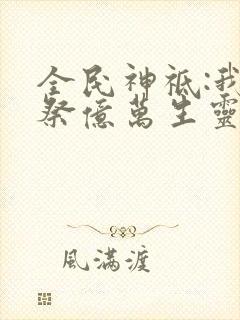 全民神祗:我
祭億萬生靈
風滿渡